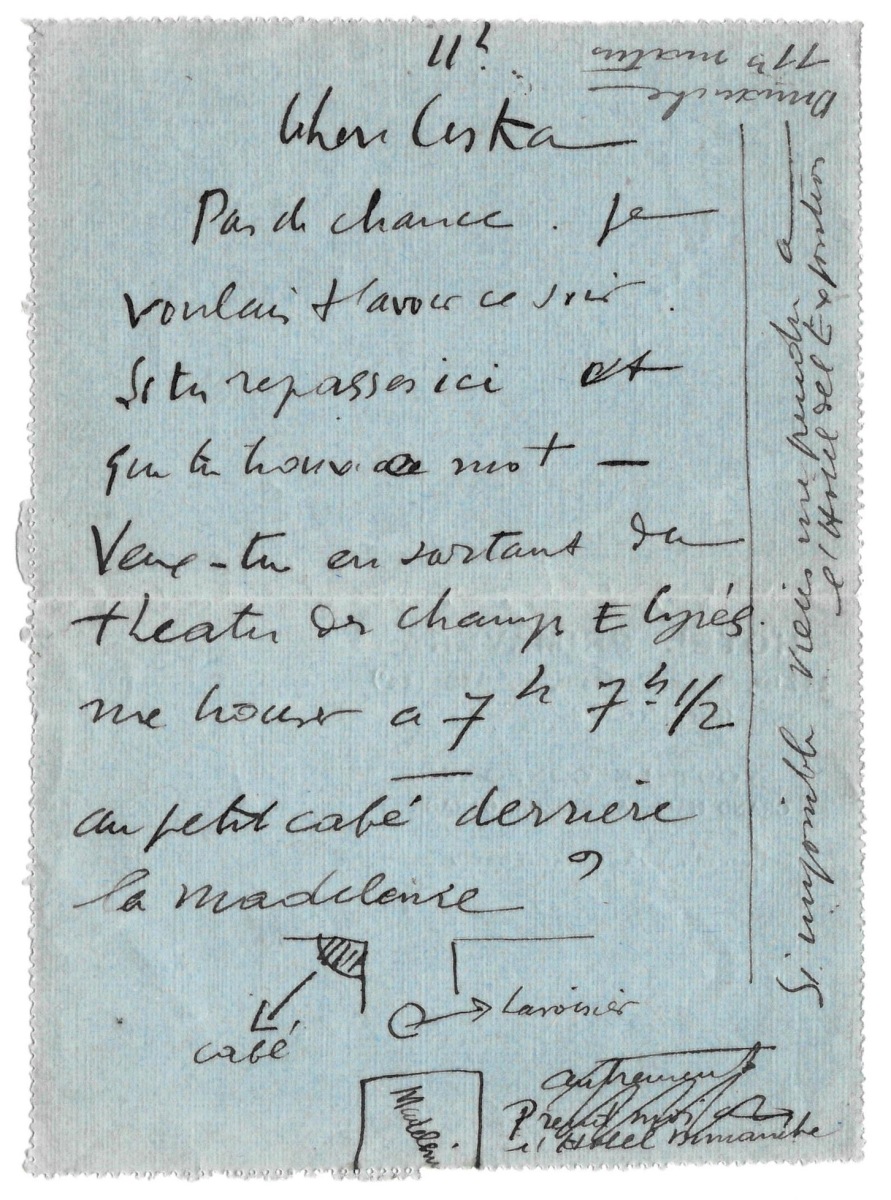 11h
Cher Ceska
Pas de chance. Je
voulais t'avoir ce soir.
Si tu repasses ici et
que tu trouves ce mot —
Veux-tu en sortant du
theatre des champs Elysées
me trouver a 7h 7h 1/2
au petit café derriere
la madeleine ?
café
Lavoisier
Madelei.
autrement
Prend moi a
l'Hotel Dimanche
Si impossible viens me prendre a
l'Hotel de l'Exposition
Dimanche
11h matin